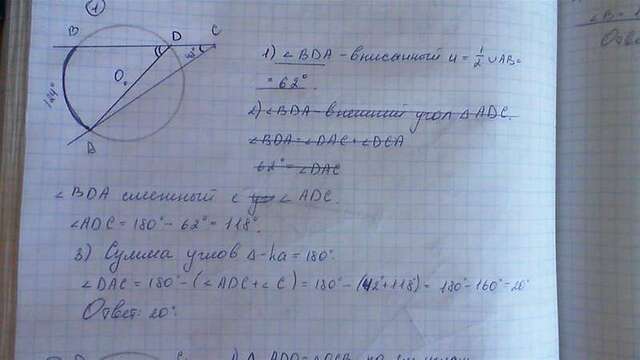 1
B D C
42°
O
124°
A
1) ∠BDA - вписанный и = 1/2 ∪AB =
= 62°.
2) ∠BDA - внешний угол Δ ADC.
∠BDA = ∠DAC + ∠DCA
62° = ∠DAC
∠BDA смежный с ∠ADC.
∠ADC = 180° - 62° = 118°.
3) Сумма углов Δ-ка = 180°.
∠DAC = 180° - (∠ADC + ∠C) = 180° - (42° + 118°) = 180° - 160° = 20°
Ответ: 20°.
∠B = 1
Отве